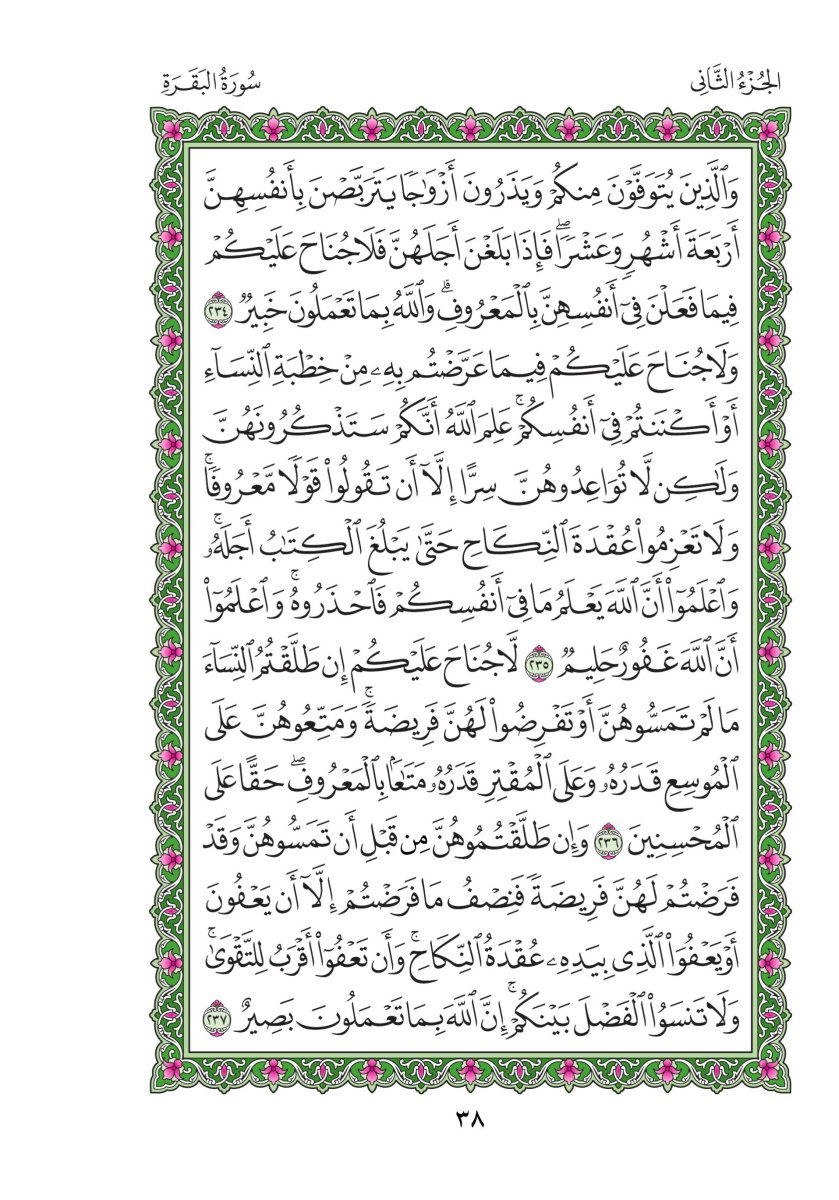 الجُزْءُ الثَّانِي
سُورَةُ البَقَرَةِ
وَٱلَّذِينَ يُتَوَفَّوْنَ مِنكُمْ وَيَذَرُونَ أَزْوَٰجًا يَتَرَبَّصْنَ بِأَنفُسِهِنَّ
أَرْبَعَةَ أَشْهُرٍ وَعَشْرًاۖ فَإِذَا بَلَغْنَ أَجَلَهُنَّ فَلَا جُنَاحَ عَلَيْكُمْ
فِيمَا فَعَلْنَ فِىٓ أَنفُسِهِنَّ بِٱلْمَعْرُوفِۗ وَٱللَّهُ بِمَا تَعْمَلُونَ خَبِيرٌ ٢٣٤
وَلَا جُنَاحَ عَلَيْكُمْ فِيمَا عَرَّضْتُم بِهِۦ مِنْ خِطْبَةِ ٱلنِّسَآءِ
أَوْ أَكْنَنتُمْ فِىٓ أَنفُسِكُمْۚ عَلِمَ ٱللَّهُ أَنَّكُمْ سَتَذْكُرُونَهُنَّ
وَلَٰكِن لَّا تُوَاعِدُوهُنَّ سِرًّا إِلَّآ أَن تَقُولُوا۟ قَوْلًا مَّعْرُوفًاۚ
وَلَا تَعْزِمُوا۟ عُقْدَةَ ٱلنِّكَاحِ حَتَّىٰ يَبْلُغَ ٱلْكِتَٰبُ أَجَلَهُۥۚ
وَٱعْلَمُوٓا۟ أَنَّ ٱللَّهَ يَعْلَمُ مَا فِىٓ أَنفُسِكُمْ فَٱحْذَرُوهُۚ وَٱعْلَمُوٓا۟
أَنَّ ٱللَّهَ غَفُورٌ حَلِيمٌ ٢٣٥ لَّا جُنَاحَ عَلَيْكُمْ إِن طَلَّقْتُمُ ٱلنِّسَآءَ
مَا لَمْ تَمَسُّوهُنَّ أَوْ تَفْرِضُوا۟ لَهُنَّ فَرِيضَةًۚ وَمَتِّعُوهُنَّ عَلَى
ٱلْمُوسِعِ قَدَرُهُۥ وَعَلَى ٱلْمُقْتِرِ قَدَرُهُۥ مَتَٰعًۢا بِٱلْمَعْرُوفِۖ حَقًّا عَلَى
ٱلْمُحْسِنِينَ ٢٣٦ وَإِن طَلَّقْتُمُوهُنَّ مِن قَبْلِ أَن تَمَسُّوهُنَّ وَقَدْ
فَرَضْتُمْ لَهُنَّ فَرِيضَةً فَنِصْفُ مَا فَرَضْتُمْ إِلَّآ أَن يَعْفُونَ
أَوْ يَعْفُوَا۟ ٱلَّذِى بِيَدِهِۦ عُقْدَةُ ٱلنِّكَاحِۚ وَأَن تَعْفُوٓا۟ أَقْرَبُ لِلتَّقْوَىٰۚ
وَلَا تَنسَوُا۟ ٱلْفَضْلَ بَيْنَكُمْۚ إِنَّ ٱللَّهَ بِمَا تَعْمَلُونَ بَصِيرٌ ٢٣٧
٣٨